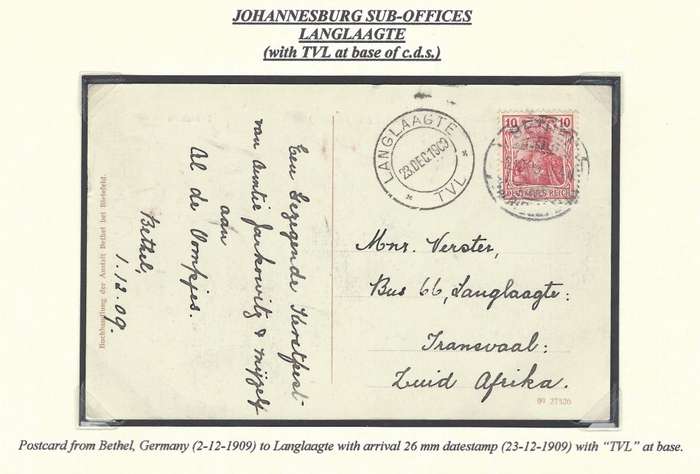 JOHANNESBURG SUB-OFFICES
LANGLAAGTE
(with TVL at base of c.d.s.)
Buchhandlung der Anstalt Bethel bei Bielefeld.
Een Gezegende Kerstfeest
van Auntie Jarkowitz & mijzelf
aan
Al de Oompjes.
Bethel,
1.12.09.
LANGLAAGTE
23.DEC.1909
* TVL *
10 10
DEUTSCHES REICH
Mnr. Verster,
Bus 66, Langlaagte:
Transvaal:
Zuid Afrika.
09 27520
Postcard from Bethel, Germany (2-12-1909) to Langlaagte with arrival 26 mm datestamp (23-12-1909) with “TVL” at base.